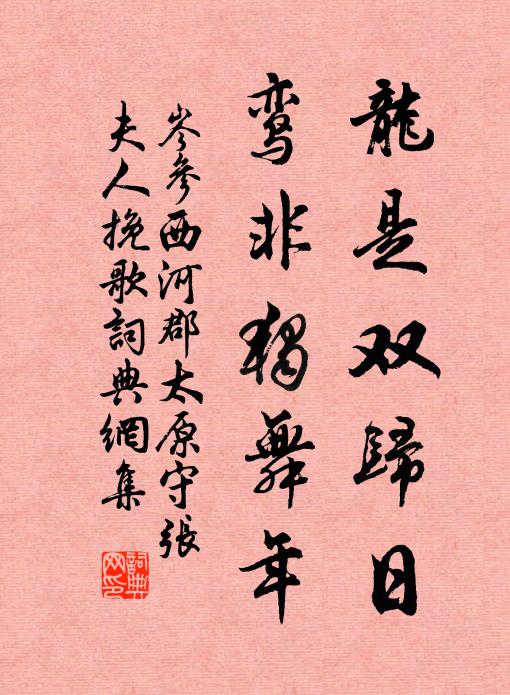 龍是双歸日
鸾非獨舞年
岑參西河郡太原守張
夫人挽歌詞典網集
詞典网印